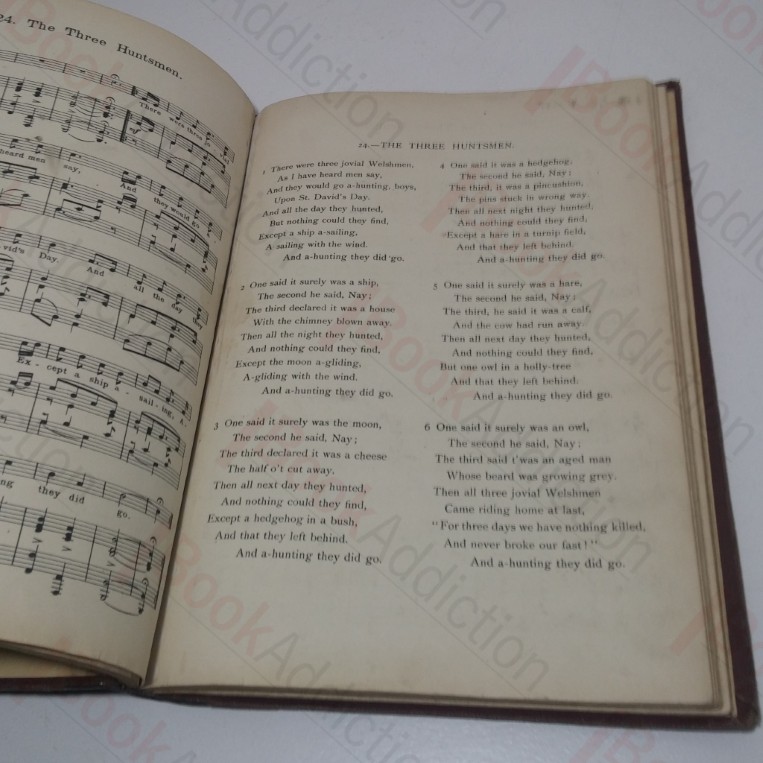 24. The Three Huntsmen.
There were three jo
heard men say, And they would go
vid's Day. And all the day they
Ex - cept a ship a - sail - ing, A
ng they did go.
24.—THE THREE HUNTSMEN.
1 There were three jovial Welshmen,
As I have heard men say,
And they would go a-hunting, boys,
Upon St. David's Day.
And all the day they hunted,
But nothing could they find,
Except a ship a-sailing,
A-sailing with the wind.
And a-hunting they did go.
2 One said it surely was a ship,
The second he said, Nay;
The third declared it was a house
With the chimney blown away.
Then all the night they hunted,
And nothing could they find,
Except the moon a-gliding,
A-gliding with the wind.
And a-hunting they did go.
3 One said it surely was the moon,
The second he said, Nay;
The third declared it was a cheese
The half o't cut away.
Then all next day they hunted,
And nothing could they find,
Except a hedgehog in a bush,
And that they left behind.
And a-hunting they did go.
4 One said it was a hedgehog;
The second he said, Nay;
The third, it was a pincushion,
The pins stuck in wrong way.
Then all next night they hunted,
And nothing could they find,
Except a hare in a turnip field,
And that they left behind.
And a-hunting they did go.
5 One said it surely was a hare,
The second he said, Nay;
The third, he said it was a calf,
And the cow had run away.
Then all next day they hunted,
And nothing could they find,
But one owl in a holly-tree
And that they left behind.
And a-hunting they did go.
6 One said it surely was an owl,
The second he said, Nay;
The third said t'was an aged man
Whose beard was growing grey.
Then all three jovial Welshmen
Came riding home at last,
"For three days we have nothing killed,
And never broke our fast!"
And a-hunting they did go.
BookAddiction